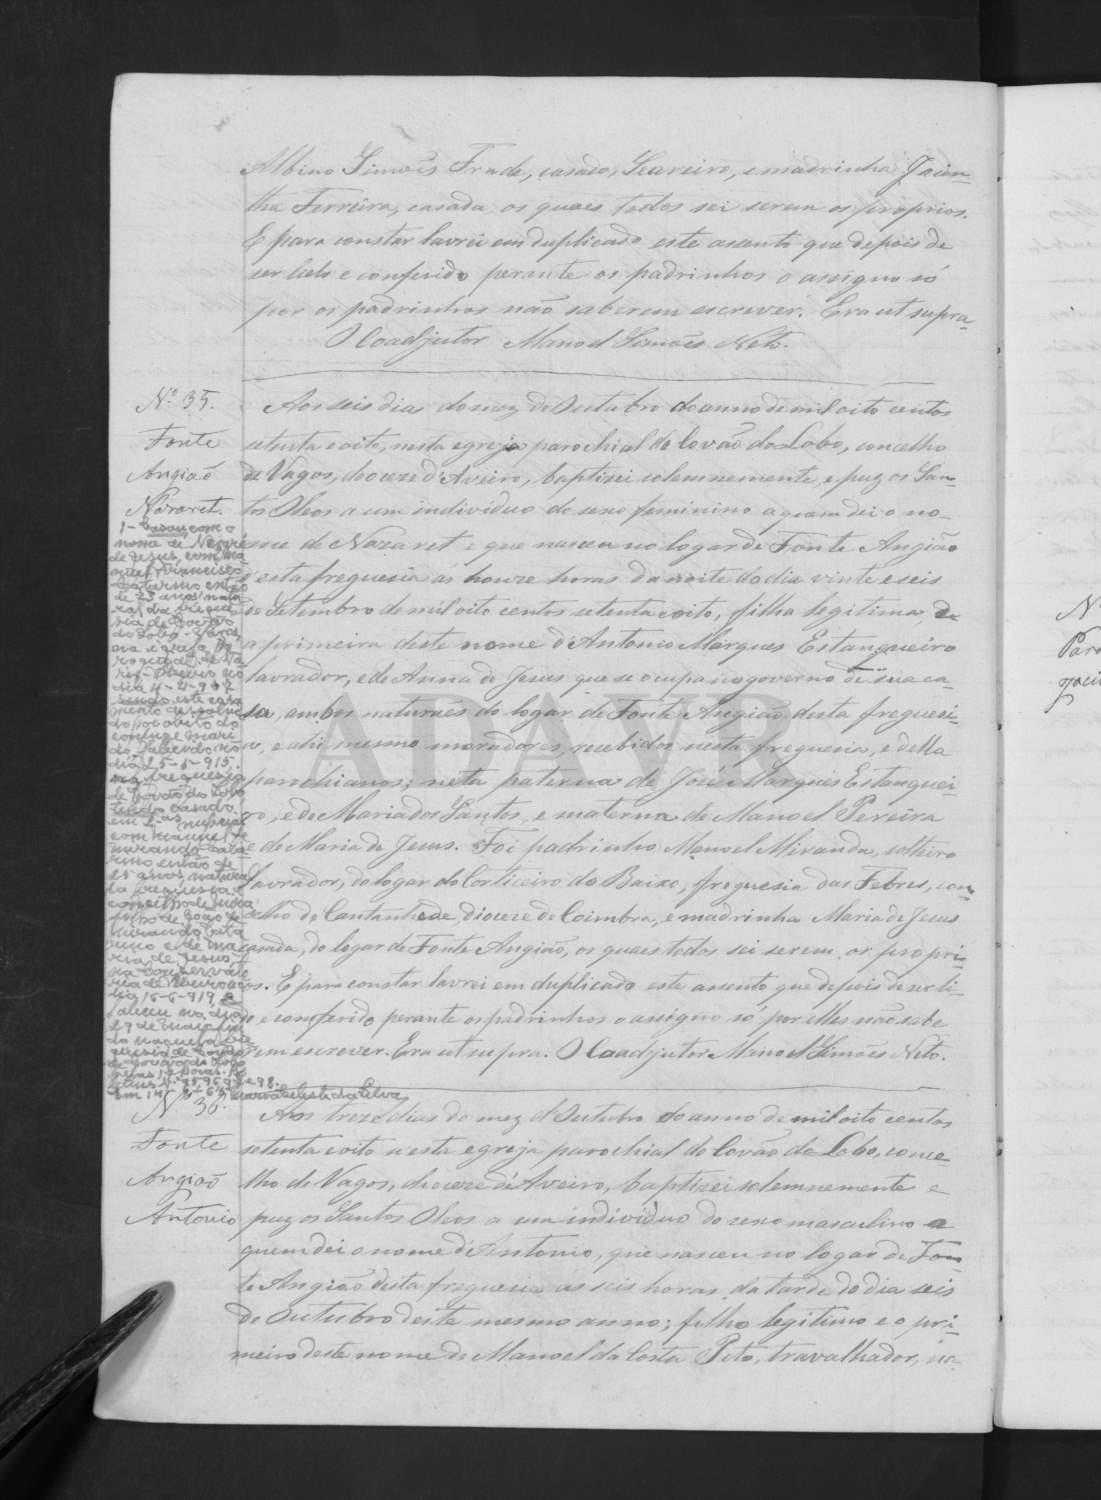 Albino Simões Frade, casado, Seareiro, e madrinha Jacin-
tha Ferreira, casada os quaes todos sei serem os proprios.
E para constar lavrei em duplicado este assento que depois de
ser lido e conferido perante os padrinhos o assigno só
por os padrinhos não saberem escrever. Era ut supra_
O Coadjutor Manoel Simões Neto.
Nº 35.
Fonte
Angião
Nazaret.
Aos seis dias do mez de Outubro do anno de mil oito centos
setenta e oito, nesta egreja parochial do Covão do Lobo, concelho
de Vagos, diocese d'Aveiro, baptizei solemnemente, e puz os San-
tos Oleos a um individuo do sexo feminino a quem dei o no-
me de Nazaret e que nasceu no logar de Fonte Angião
d'esta freguesia ás honze horas da noite do dia vinte e seis
de Setembro de mil oito centos setenta e oito, filha legitima, e
a primeira deste nome d'Antonio Marques Estanqueiro
lavrador, e de Anna de Jesus que se occupa no governo de sua ca-
sa, ambos naturaes do logar de Fonte Angião desta freguesi-
a, e ahi mesmo moradores, recebidos nesta freguesia, e della
parochianos; neta paterna de José Marques Estanquei-
ro, e de Maria dos Santos, e materna de Manoel Pereira
e de Maria de Jesus. Foi padrinho Manoel Miranda, solteiro
lavrador, do logar do Corticeiro de Baixo, freguesia das Febres, con-
celho de Cantanhede, diocese de Coimbra, e madrinha Maria de Jesus
casada, do logar de Fonte Angião, os quaes todos sei serem os propri-
os. E para constar lavrei em duplicado este assento que depois de ser li-
do e conferido perante os padrinhos o assigno só por elles não sabe
rem escrever. Era ut supra. O Coadjutor Manoel Simões Neto.
1- Casou com o
nome de Nazaré
de Jesus, com
Francisco
então
de 23 anos natu
ral da fregue
sia de Covão
do Lobo
dia 4-2-907
sendo este casa
mento dissolvi
do por obito do
conjuge mari
do falecido no
dia 25-5-915.
na freguesia
de Covão do Lobo
tendo casado
em 2as nupcias
com Manuel de
Miranda
então de
25 anos, natural
da freguesia e
concelho de Mira
filho de João de
Miranda
e de Ma
ria de Jesus
na conservató
ria de
dia 16-6-919. Fa
leceu no dia
29 de Março
Nº 36.
Fonte
Angião
Antonio
Aos treze dias do mez d'Outubro do anno de mil oito centos
setenta e oito n'esta egreja parochial do Covão do Lobo, conce
lho de Vagos, diocese d'Aveiro, baptizei solemnemente e
puz os Santos Oleos a um individuo do sexo masculino a
quem dei o nome d'Antonio, que nasceu no logar de Fon-
te Angião desta freguesia ás seis horas da tarde do dia seis
de Outubro deste mesmo anno; filho legitimo e o pri-
meiro deste nome de Manoel da Costa Pito, travalhador, na-
Nº
ADAVR